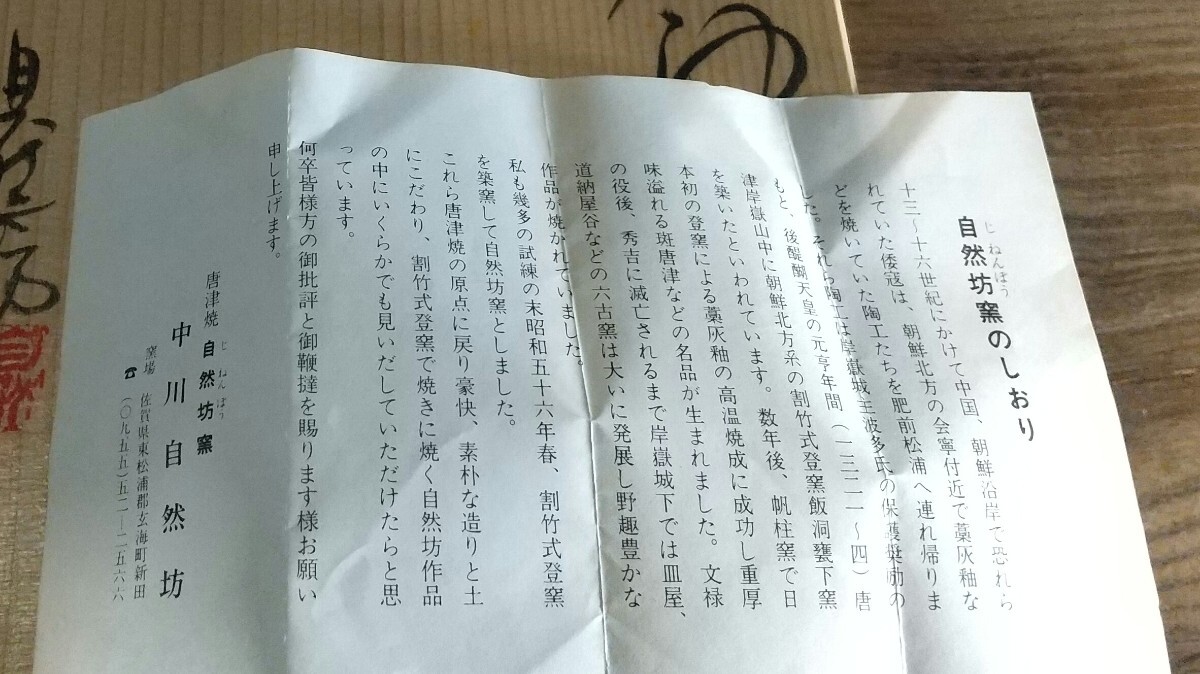 自然坊窯のしおり
じねんぼう
十三〜十六世紀にかけて中国、朝鮮沿岸で恐れら
れていた倭寇は、朝鮮北方の会寧付近で藁灰釉な
どを焼いていた陶工たちを肥前松浦へ連れ帰りま
した。それら陶工は岸嶽城王波多氏の保護奨励の
もと、後醍醐天皇の元亨年間（一三二一〜四）唐
津岸嶽山中に朝鮮北方系の割竹式登窯飯洞甕下窯
を築いたといわれています。数年後、帆柱窯で日
本初の登窯による藁灰釉の高温焼成に成功し重厚
味溢れる斑唐津などの名品が生まれました。文禄
の役後、秀吉に滅亡されるまで岸嶽城下では皿屋、
道納屋谷などの六古窯は大いに発展し野趣豊かな
作品が焼かれていました。
私も幾多の試練の末昭和五十六年春、割竹式登窯
を築窯して自然坊窯としました。
これら唐津焼の原点に戻り豪快、素朴な造りと土
にこだわり、割竹式登窯で焼きに焼く自然坊作品
の中にいくらかでも見いだしていただけたらと思
っています。
何卒皆様方の御批評と御鞭撻を賜ります様お願い
申し上げます。
唐津焼 自然坊窯
じねんぼう
中川自然坊
窯場 佐賀県東松浦郡玄海町新田
☎（〇九五五）五二―二五六六